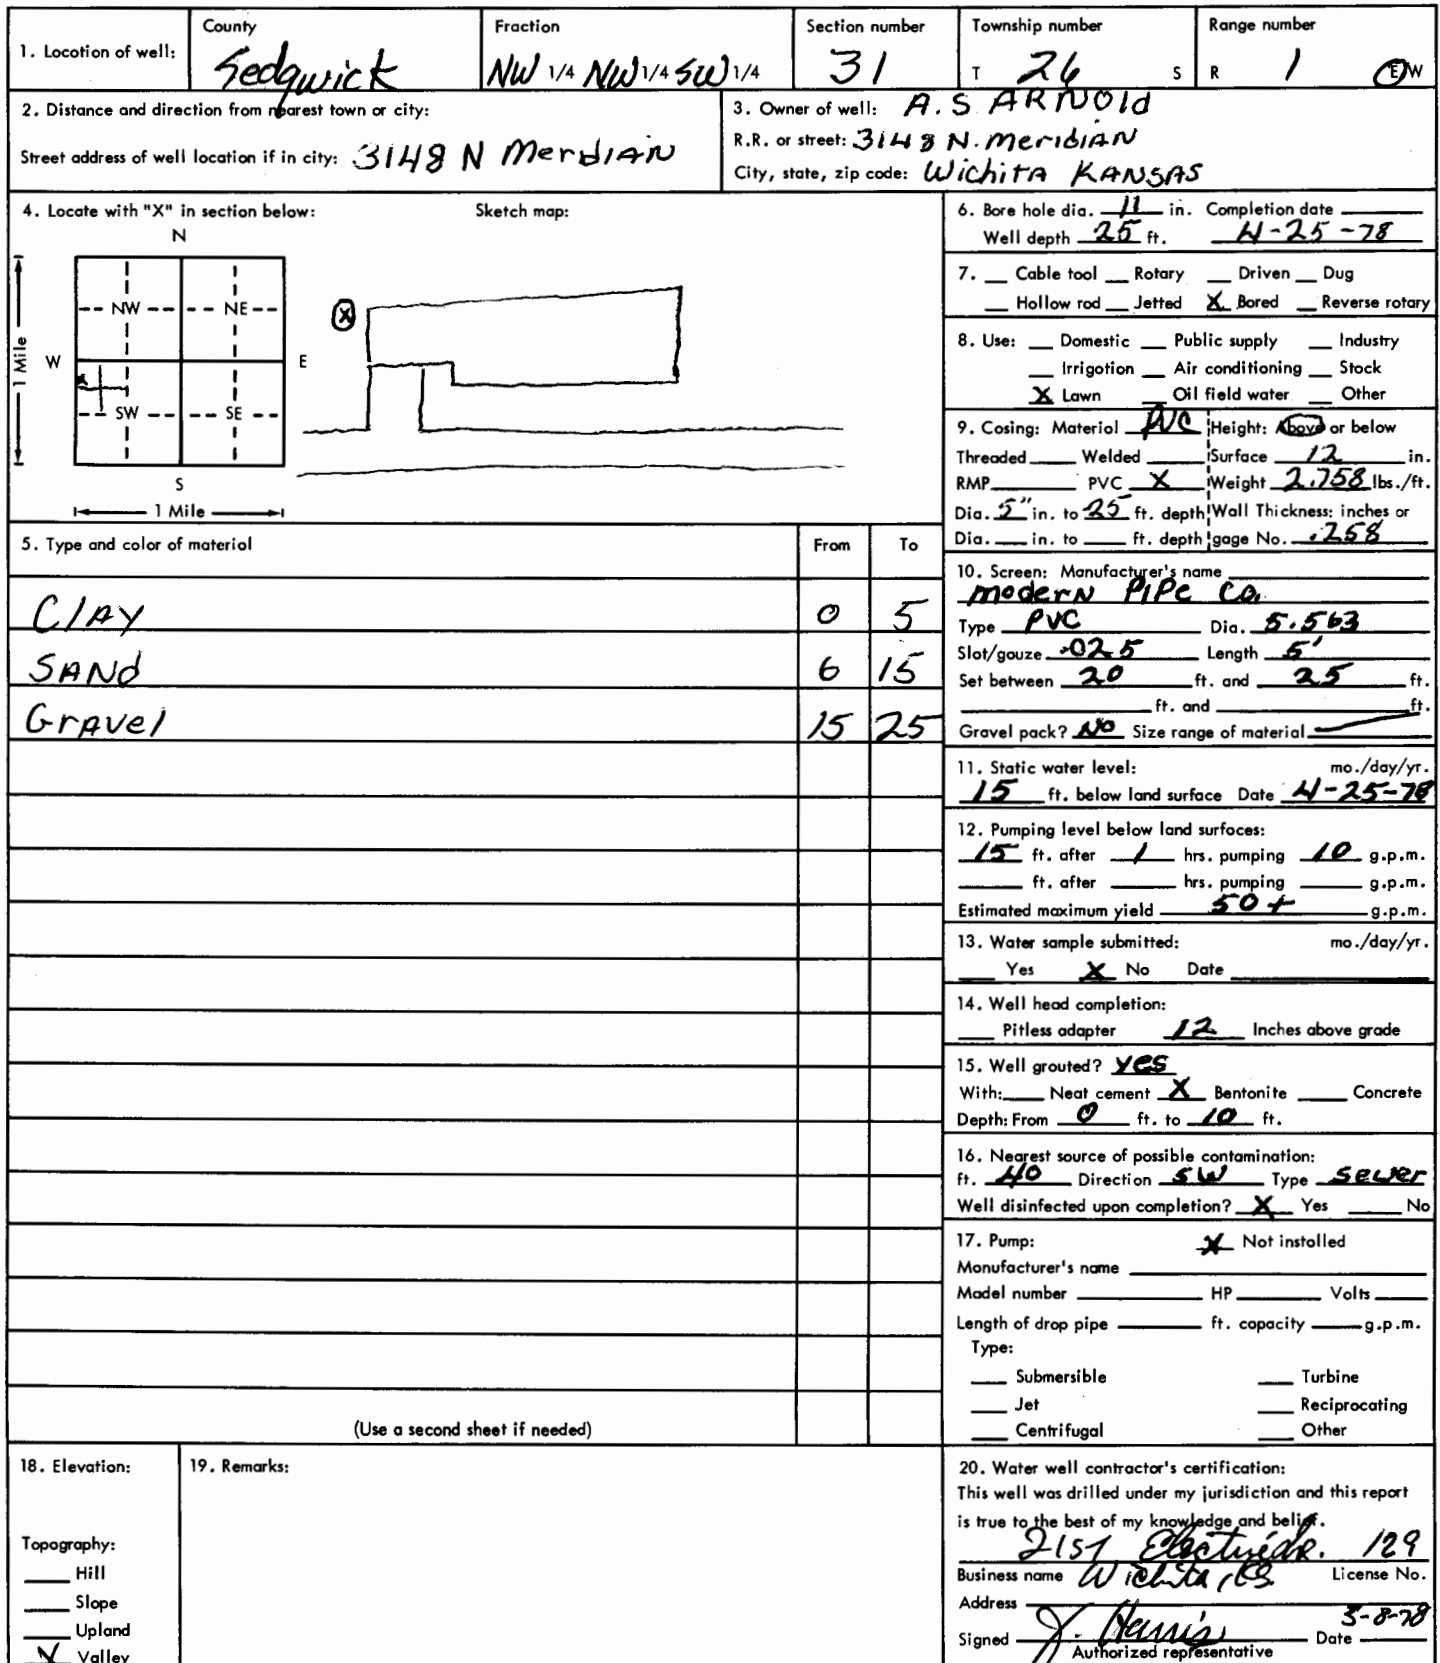 1. Location of well: County Sedgwick Fraction NW 1/4 NW 1/4 SW 1/4 Section number 31 Township number T 26 S Range number R 1 E W
2. Distance and direction from nearest town or city:
Street address of well location if in city: 3148 N MerdiAN
3. Owner of well: A. S ARNOld
R.R. or street: 3148 N. MeridiAN
City, state, zip code: Wichita KANSAS
4. Locate with "X" in section below: Sketch map:
N
NW NE
W E
X
SW SE
S
1 Mile
1 Mile
X
5. Type and color of material From To
ClAY 0 5
SANd 6 15
GrAvel 15 25
(Use a second sheet if needed)
6. Bore hole dia. 11 in. Completion date
Well depth 25 ft. 4-25-78
7. Cable tool Rotary Driven Dug
Hollow rod Jetted X Bored Reverse rotary
8. Use: Domestic Public supply Industry
Irrigation Air conditioning Stock
X Lawn Oil field water Other
9. Casing: Material PVC Height: Above or below
Threaded Welded Surface 12 in.
RMP PVC X Weight 2.758 lbs./ft.
Dia. 5" in. to 25 ft. depth Wall Thickness: inches or
Dia. in. to ft. depth gage No. .258
10. Screen: Manufacturer's name
moderN PiPe Co.
Type PVC Dia. 5.563
Slot/gauze .025 Length 5'
Set between 20 ft. and 25 ft.
ft. and ft.
Gravel pack? No Size range of material
11. Static water level: mo./day/yr.
15 ft. below land surface Date 4-25-78
12. Pumping level below land surfaces:
15 ft. after 1 hrs. pumping 10 g.p.m.
ft. after hrs. pumping g.p.m.
Estimated maximum yield 50+ g.p.m.
13. Water sample submitted: mo./day/yr.
Yes X No Date
14. Well head completion:
Pitless adapter 12 Inches above grade
15. Well grouted? yes
With: Neat cement X Bentonite Concrete
Depth: From 0 ft. to 10 ft.
16. Nearest source of possible contamination:
ft. 40 Direction SW Type sewer
Well disinfected upon completion? X Yes No
17. Pump: X Not installed
Manufacturer's name
Model number HP Volts
Length of drop pipe ft. capacity g.p.m.
Type:
Submersible Turbine
Jet Reciprocating
Centrifugal Other
18. Elevation:
Topography:
Hill
Slope
Upland
X Valley
19. Remarks:
20. Water well contractor's certification:
This well was drilled under my jurisdiction and this report
is true to the best of my knowledge and belief.
21st 129
Business name Wichita, KS License No.
Address
Signed J. Harris Date 5-8-78
Authorized representative